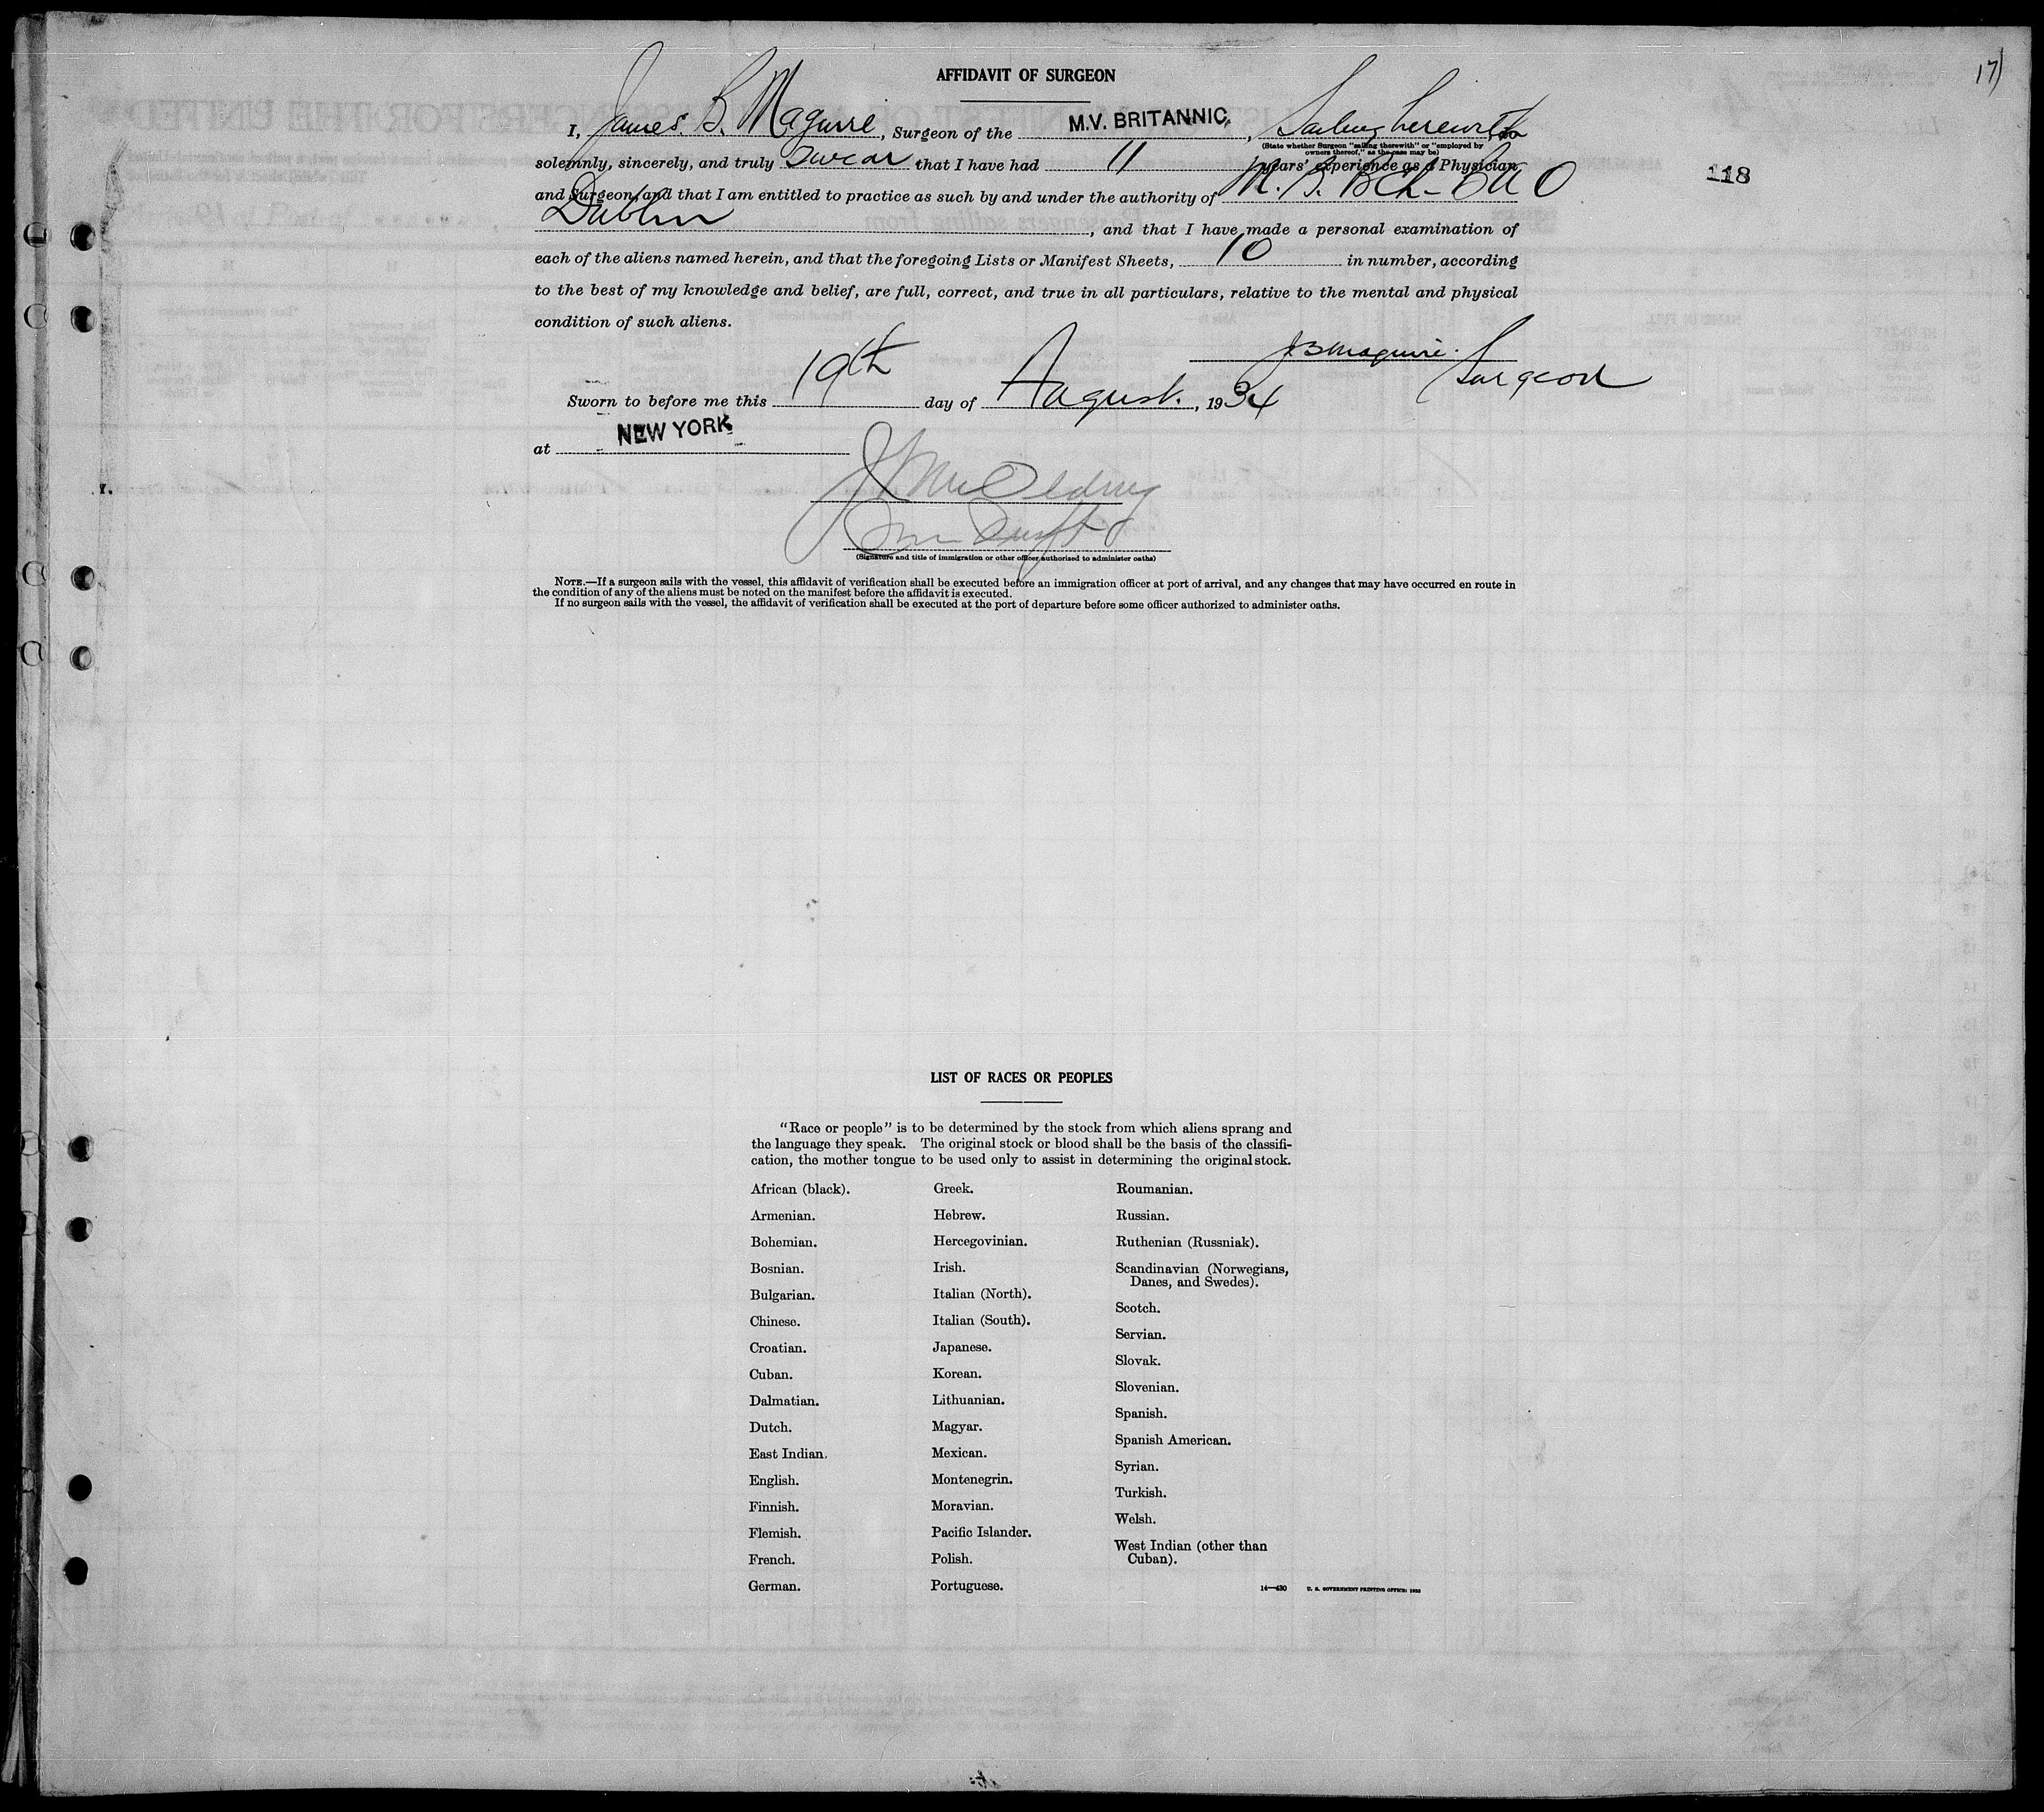 17)
AFFIDAVIT OF SURGEON
I, James B. Maguire, Surgeon of the M.V. BRITANNIC, Sailing herewith do
(State whether Surgeon "sailing therewith" or "employed by
owners thereof," as the case may be)
solemnly, sincerely, and truly swear that I have had 11 years' experience as a Physician
118
and Surgeon, and that I am entitled to practice as such by and under the authority of M. B. Bch-
Dublin, and that I have made a personal examination of
each of the aliens named herein, and that the foregoing Lists or Manifest Sheets, 10 in number, according
to the best of my knowledge and belief, are full, correct, and true in all particulars, relative to the mental and physical
condition of such aliens.
JB Maguire.
Surgeon
Sworn to before me this 19th day of August, 1934
at NEW YORK
(Signature and title of immigration or other officer authorized to administer oaths)
NOTE.—If a surgeon sails with the vessel, this affidavit of verification shall be executed before an immigration officer at port of arrival, and any changes that may have occurred en route in
the condition of any of the aliens must be noted on the manifest before the affidavit is executed.
If no surgeon sails with the vessel, the affidavit of verification shall be executed at the port of departure before some officer authorized to administer oaths.
LIST OF RACES OR PEOPLES
"Race or people" is to be determined by the stock from which aliens sprang and
the language they speak. The original stock or blood shall be the basis of the classifi-
cation, the mother tongue to be used only to assist in determining the original stock.
African (black).
Armenian.
Bohemian.
Bosnian.
Bulgarian.
Chinese.
Croatian.
Cuban.
Dalmatian.
Dutch.
East Indian.
English.
Finnish.
Flemish.
French.
German.
Greek.
Hebrew.
Hercegovinian.
Irish.
Italian (North).
Italian (South).
Japanese.
Korean.
Lithuanian.
Magyar.
Mexican.
Montenegrin.
Moravian.
Pacific Islander.
Polish.
Portuguese.
Roumanian.
Russian.
Ruthenian (Russniak).
Scandinavian (Norwegians,
Danes, and Swedes).
Scotch.
Servian.
Slovak.
Slovenian.
Spanish.
Spanish American.
Syrian.
Turkish.
Welsh.
West Indian (other than
Cuban).
14—430 U. S. GOVERNMENT PRINTING OFFICE: